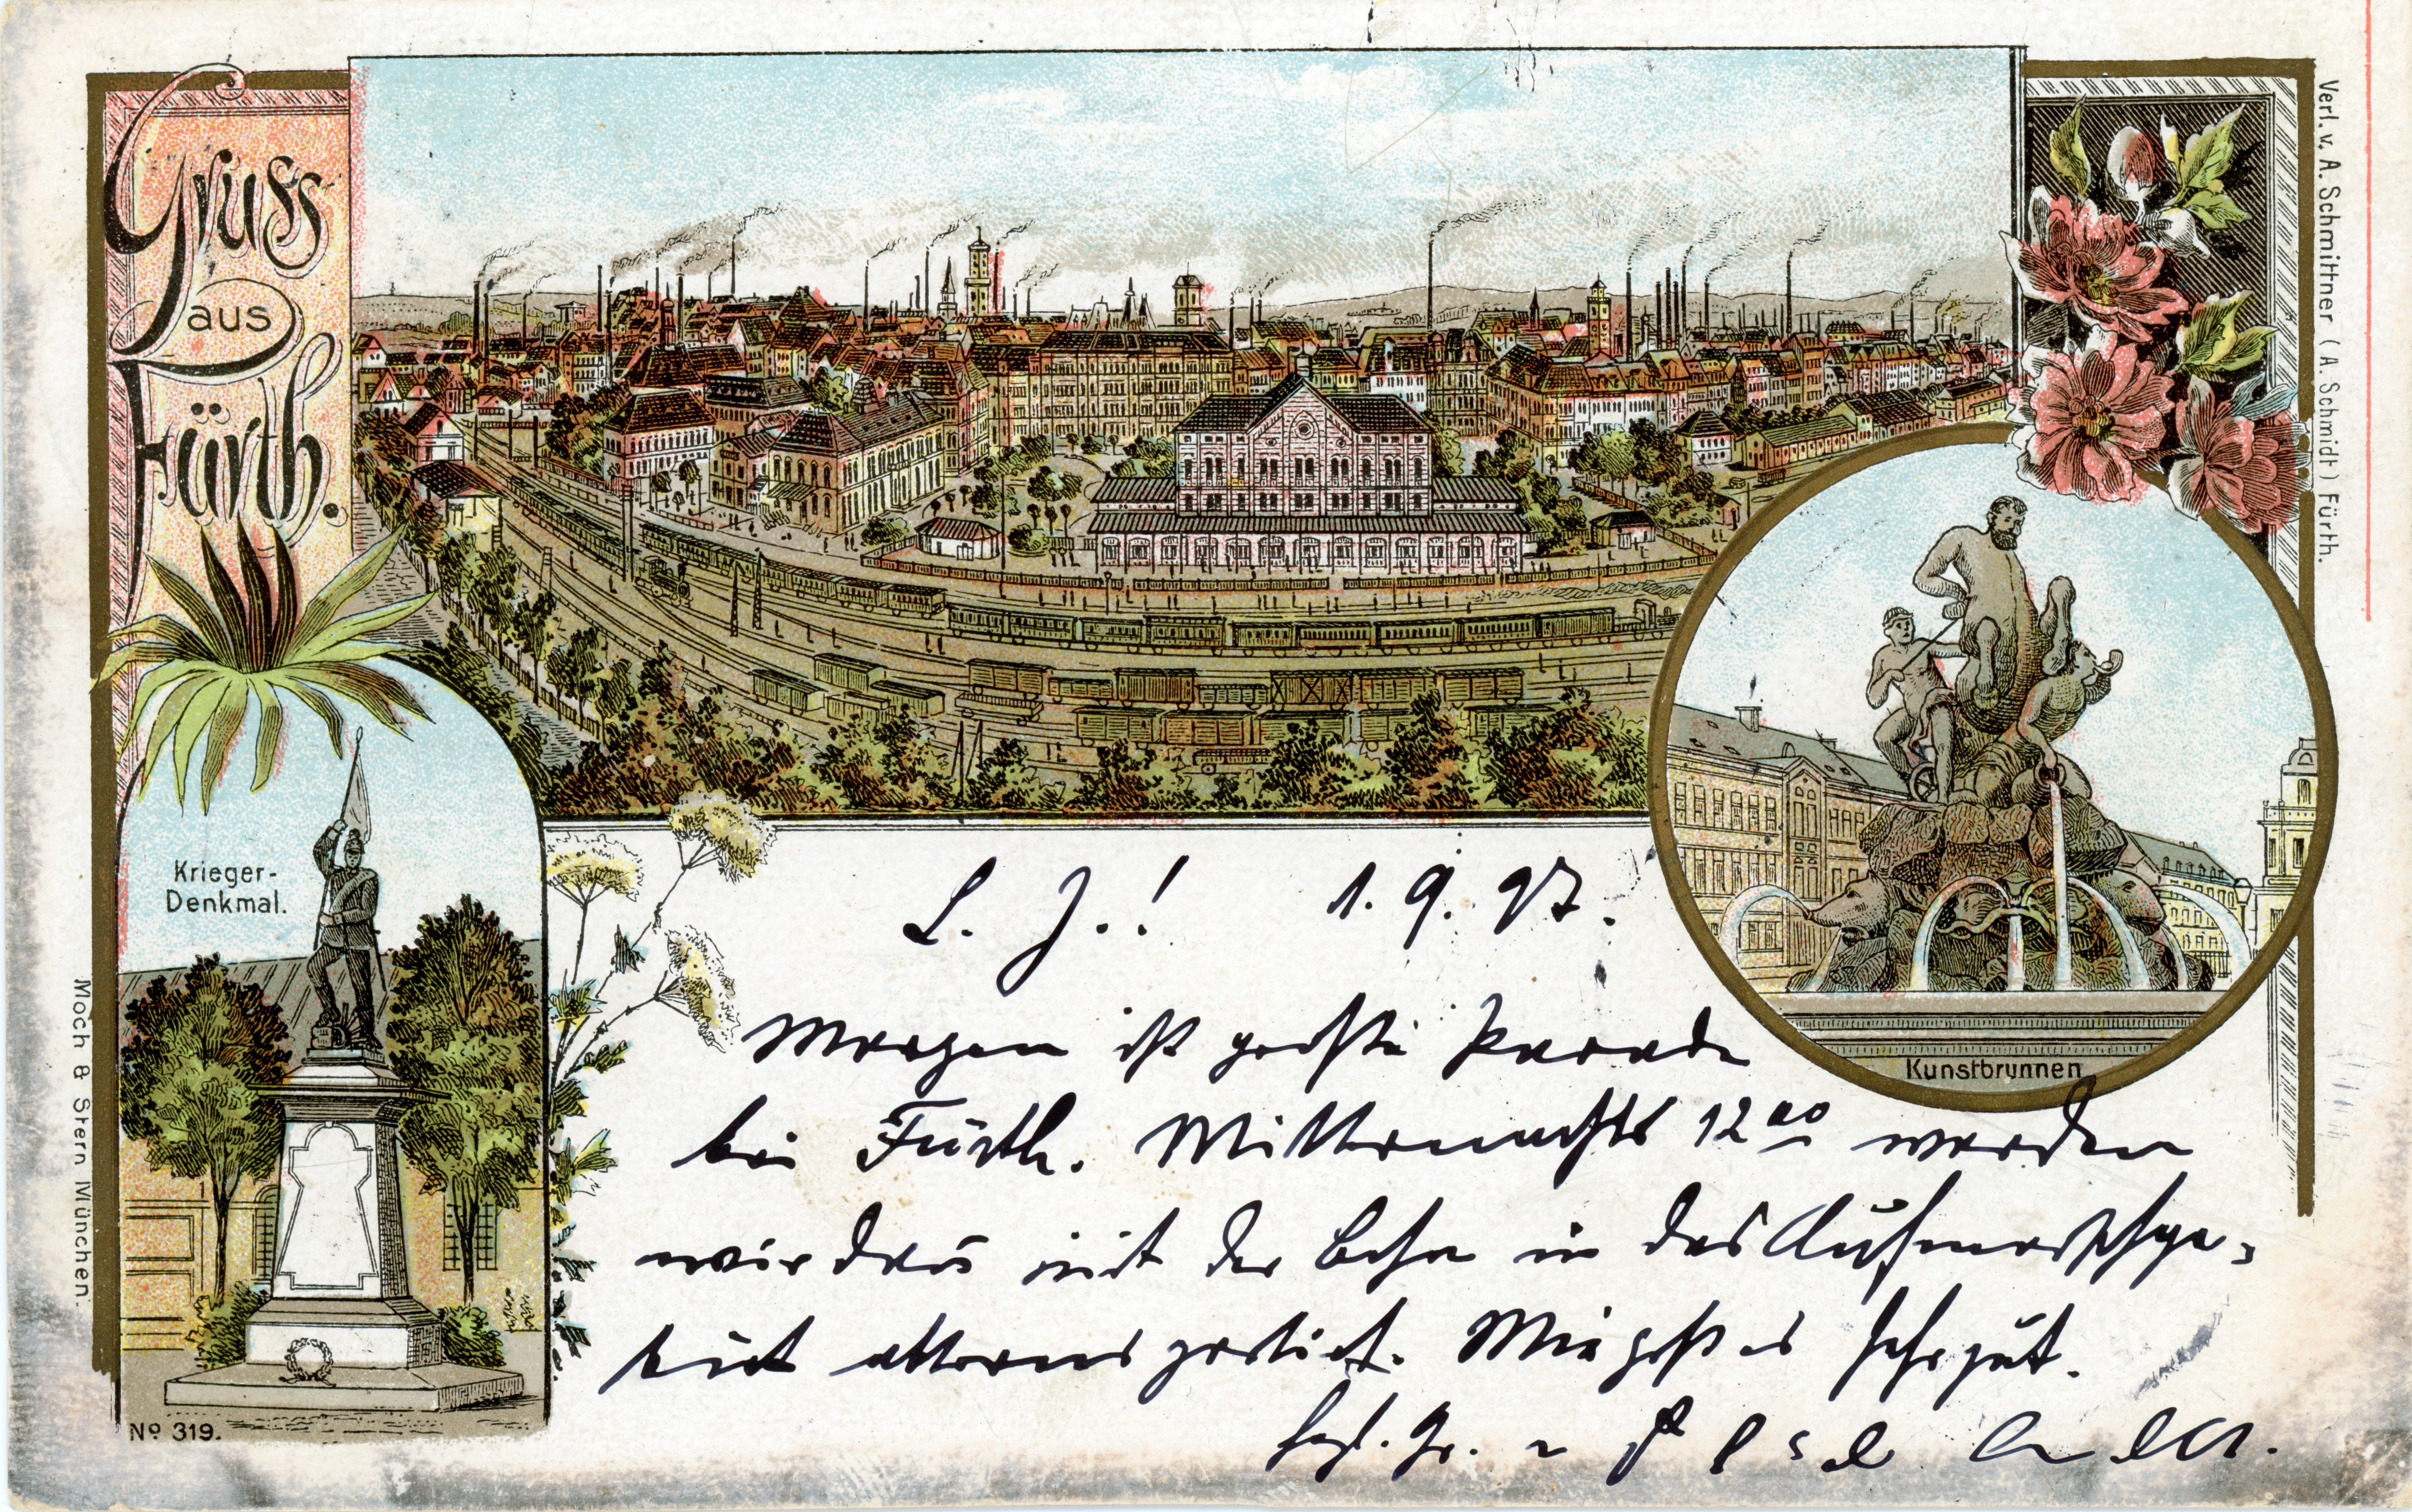 Gruss
aus
Fürth.
Verl. v. A. Schmittner (A. Schmidt) Fürth.
Krieger-
Denkmal.
Kunstbrunnen
Moch & Stern München.
No 319.
L. J.! 1. 9. 97.
Morgen ist große Parade
bei Fürth. Mitternachts 12 00 werden
wir mit der Bahn in das
Mir geht es sehr gut.